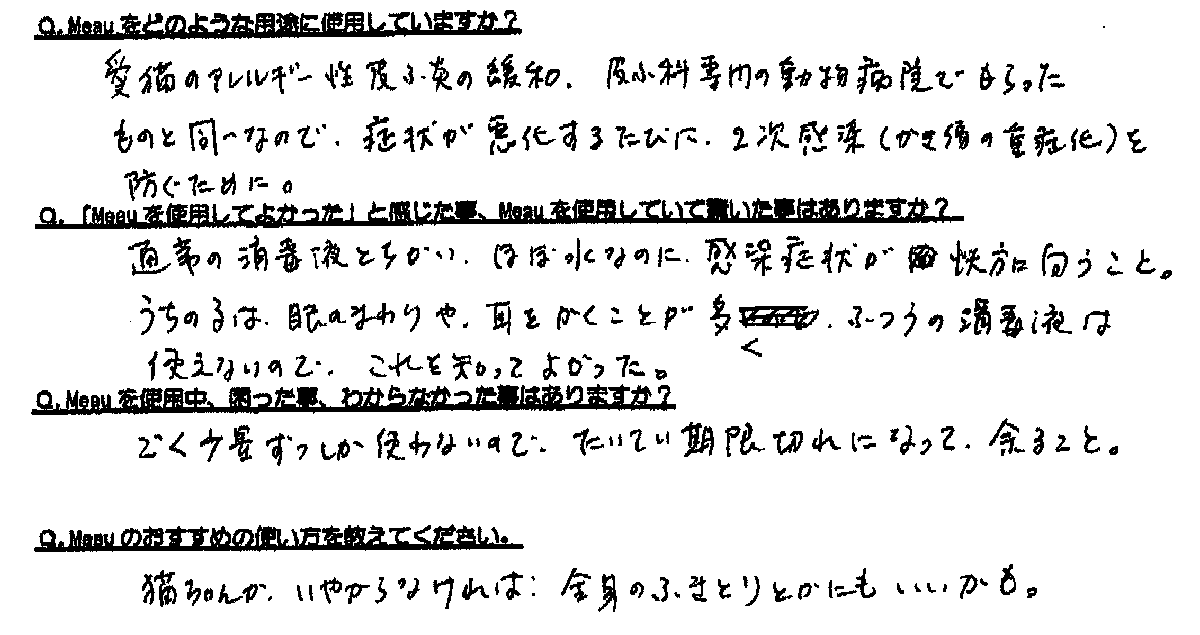 Q. Meauをどのような用途に使用していますか?
愛猫のアレルギー性皮ふ炎の緩和。皮ふ科専門の動物病院でもらった
ものと同一なので、症状が悪化するたびに、2次感染(かき傷の重症化)を
防ぐために。
Q. 「Meauを使用してよかった」と感じた事、Meauを使用していて驚いた事はありますか?
通常の消毒液とちがい、ほぼ水なのに、感染症状が快方に向うこと。
うちのるは、眼のまわりや、耳をかくことが多く、ふつうの消毒液は
使えないので、これを知ってよかった。
Q. Meauを使用中、困った事、わからなかった事はありますか?
ごく少量ずつしか使わないので、たいてい期限切れになって、余ること。
Q. Meauのおすすめの使い方を教えてください。
猫ちゃんが、いやがらなければ、全身のふきとりとかにもいいかも。